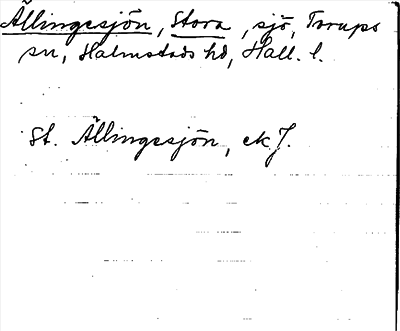 Ällingesjön, Stora, sjö, Torups
sn, Halmstads hd, Hall. l.
St. Ällingesjön, ek J.